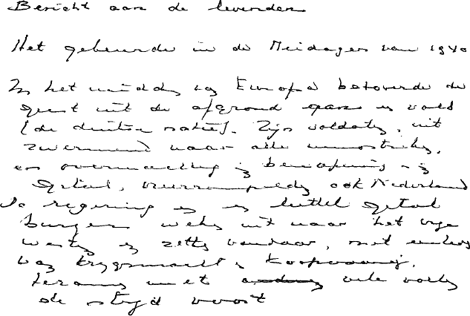 Bericht aan de levenden
Het gebeurde in de Meidagen van 1940
In het midden van Europa betoverde de
geest uit de afgrond een volk
(de duitse natie). Zijn soldaten, uit
zwermend naar alle windstreken,
en overmachtig in bewapening en in
getal, overrompelden ook Nederland
De regering en een luttel getal
burgers weken uit naar het vrije
westen en zetten vandaar, met
van krijgsmacht en koopvaardij,
tezamen met vele volken
de strijd voort